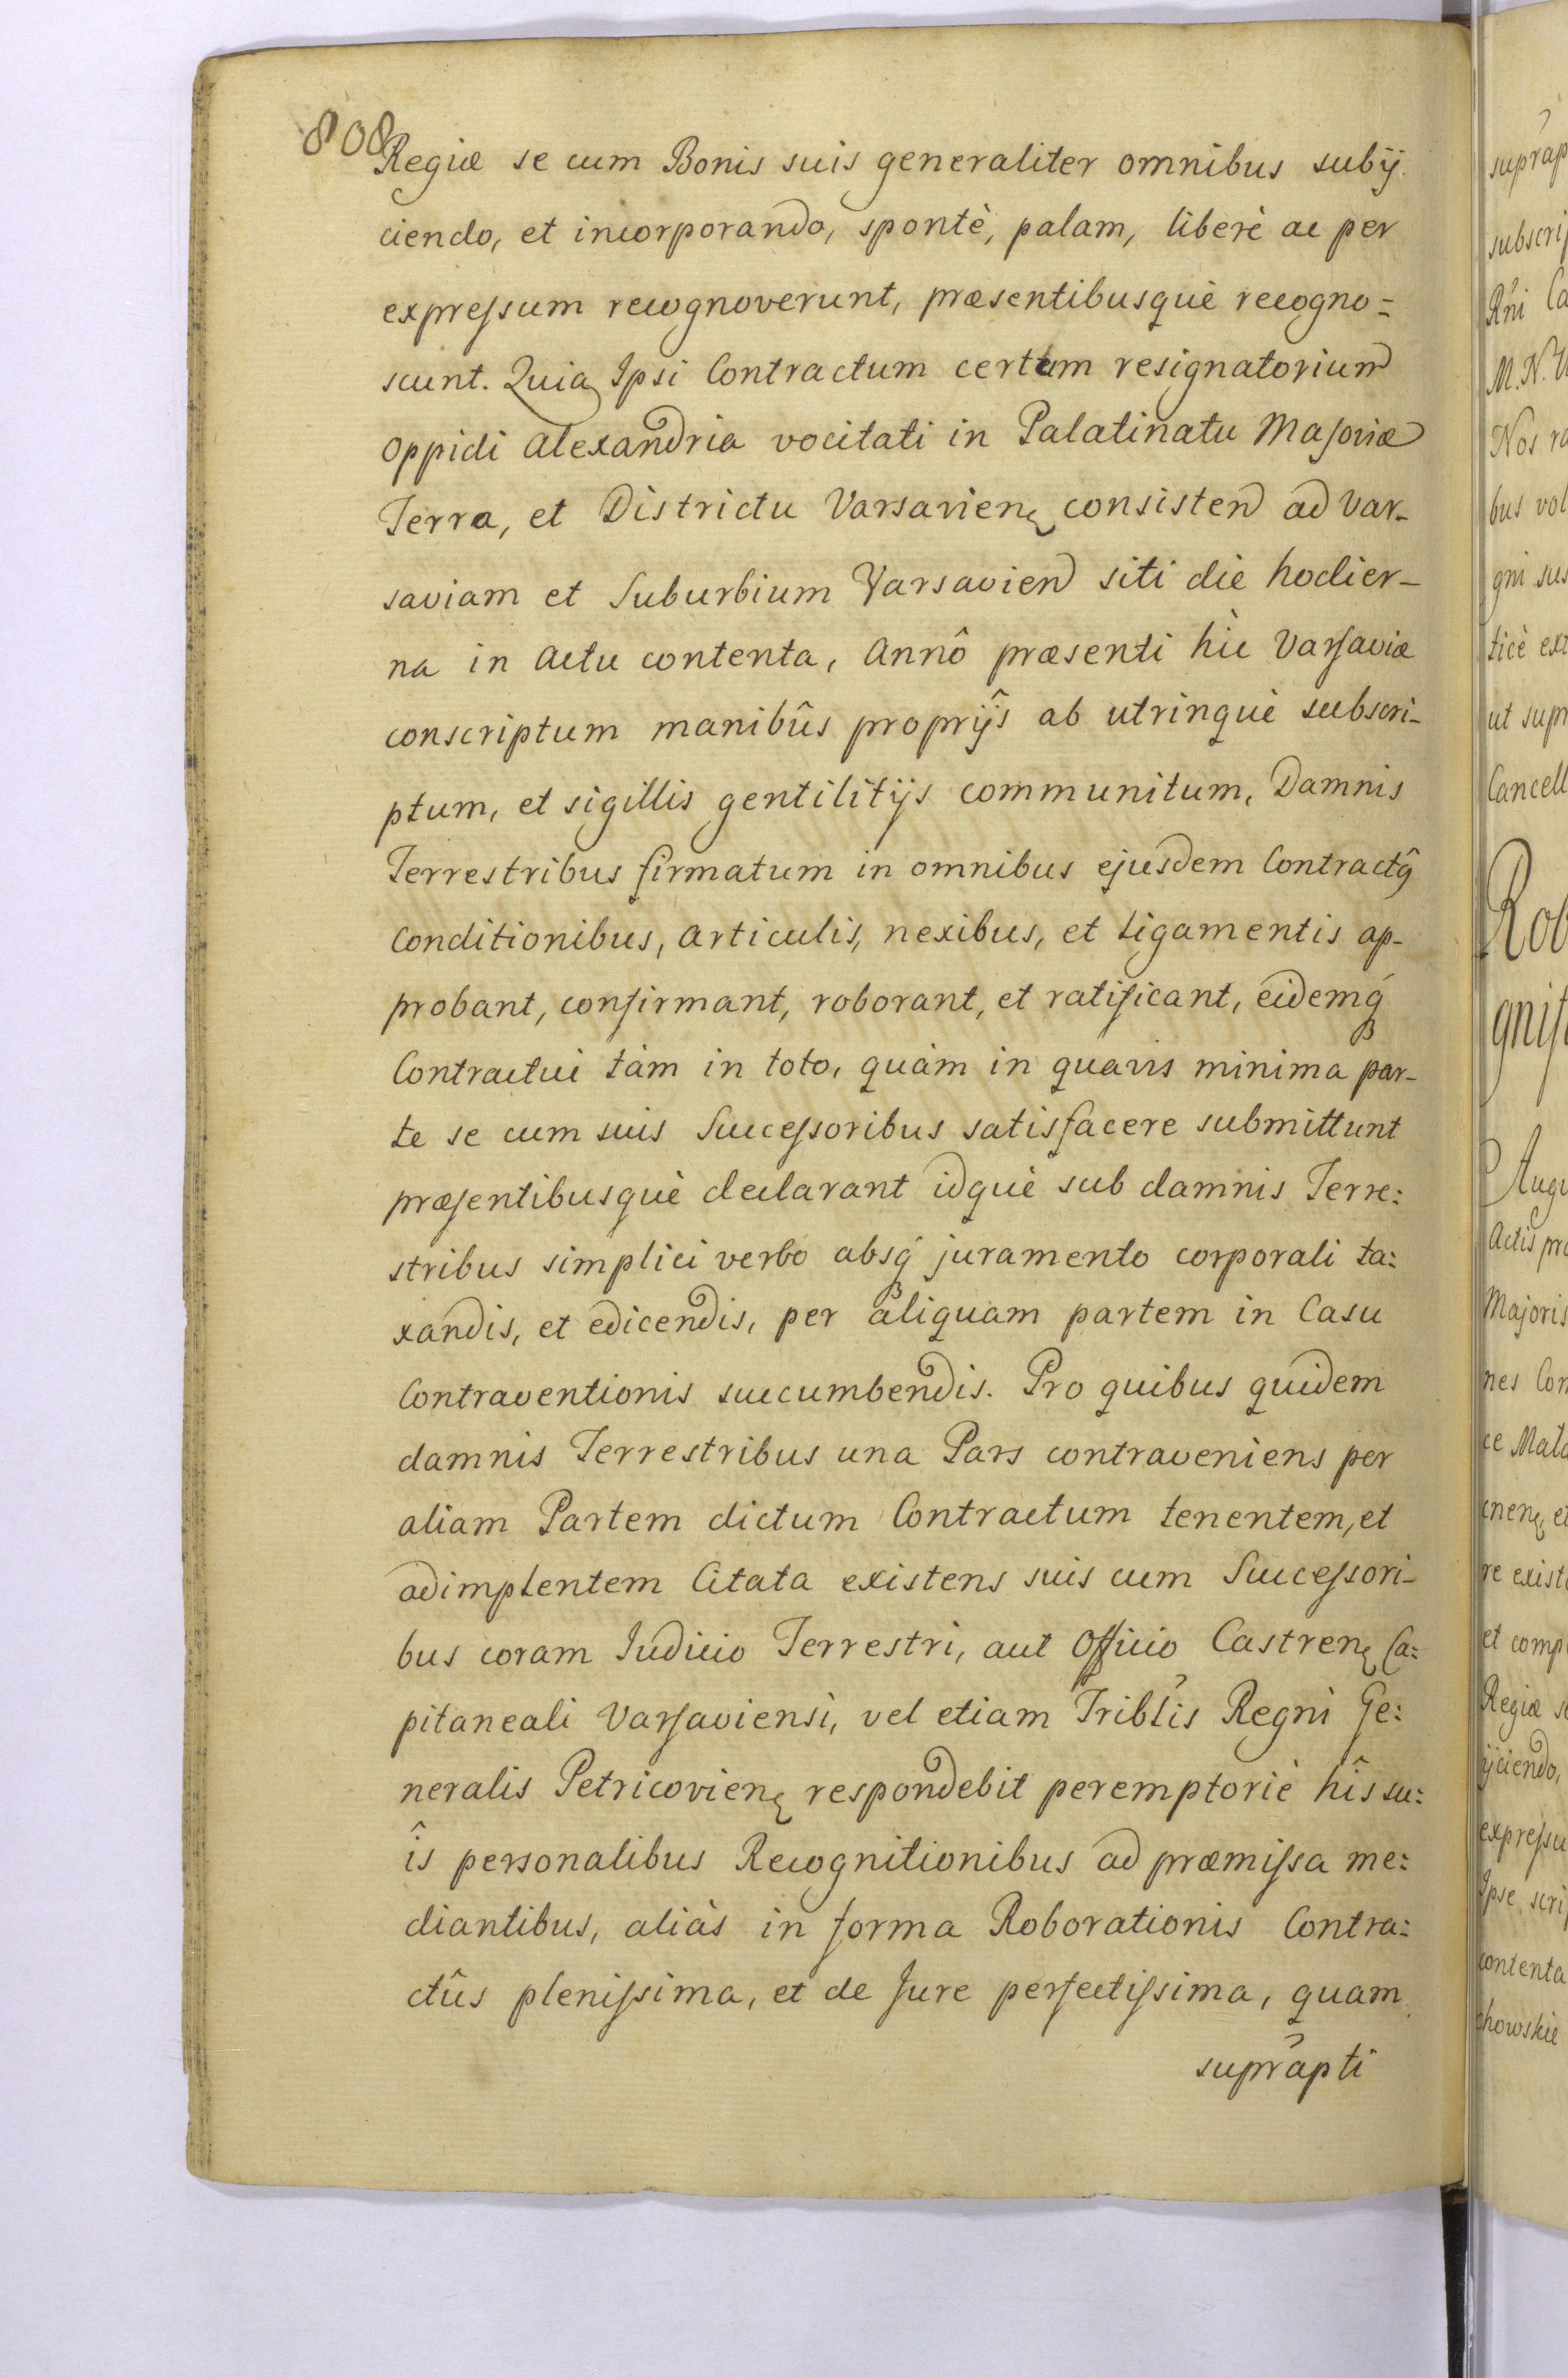 808
Regiæ se cum Bonis suis generaliter omnibus subij
ciendo, et incorporando, spontè, palam, liberè ac per
expreſsum recognoverunt, præsentibusquè recogno=
scunt. Quia Ipsi Contractum certum resignatorium
Oppidi Alexandria vocitati in Palatinatu Maſoviæ
Terra, et Districtu Varsavienę consisten ad Var-
saviam et Suburbium Varsavien siti die hodier-
na in Actu contenta, Annô præsenti hìc Varſaviæ
conscriptum manibûs proprijs ab utrinquè subscri-
ptum, et sigillis gentilitijs communitum, Damnis
Terrestribus firmatum in omnibus ejusdem Contractꝰ
Conditionibus, Articulis, nexibus, et Ligamentis ap-
probant, confirmant, roborant, et ratificant, eidemq́
Contractui tàm in toto, quàm in quavis minima par-
te se cum suis Succeſsoribus satisfacere submittunt
præſentibusquè declarant idquè sub damnis Terre:
stribus simplici verbo absq́ juramento corporali ta:
xandis, et edicendis, per aliquam partem in Casu
Contraventionis succumbendis. Pro quibus quidem
damnis Terrestribus una Pars contraveniens per
aliam Partem dictum Contractum tenentem, et
adimplentem Citata existens suis cum Succeſsori-
bus coram Iudicio Terrestri, aut Officio Castrenę Ca:
pitaneali Varſaviensi, vel etiam Triblis Regni Ge:
neralis Petricovienę respondebit peremptoriè hîs su:
îs personalibus Recognitionibus ad præmiſsa me:
diantibus, aliàs in forma Roborationis Contra:
ctûs pleniſsima, et de Jure perfectiſsima, quam
suprapti